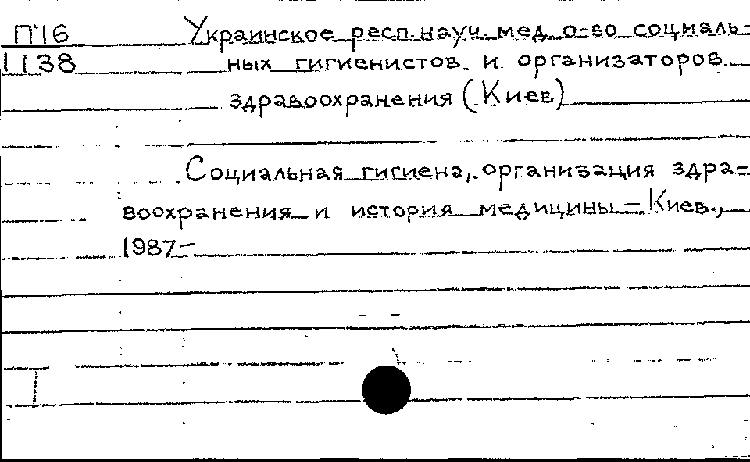 П16 Украинское респ. науч. мед. о-во социаль-
1138 ных гигиенистов и организаторов
здравоохранения (Киев)
Социальная гигиена, организация здра-
воохранения и история медицины. – Киев,
1987 –